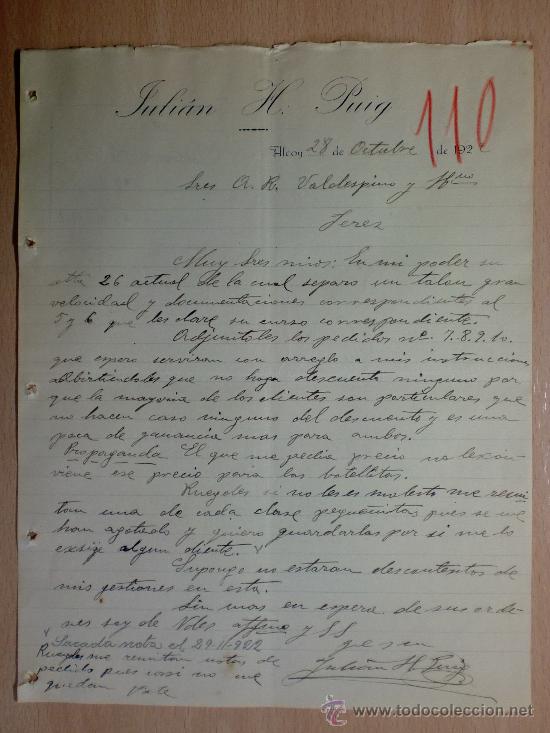 Julián H. Puig
110
Alcoy 28 de Octubre de 192
Sres A. R. Valdespino y Hno
Jerez
Muy Sres mios: En mi poder su
atta 26 actual de la cual separo un talon gran
velocidad y documentaciones correspondientes al
5 y 6 que les dare su curso correspondiente.
Adjuntoles los pedidos nº. 7.8.9.10.
que espero serviran con arreglo a mis instrucciones
que no haga descuento ninguno por
que la mayoria de los clientes son particulares que
no hacen caso ninguno del descuento y es una
poca de ganancia mas para ambos.
Propaganda El que me pedia precio no le con
viene ese precio para las botellitas.
Ruegoles si no les es molesto me remi
tan una de cada clase pequeñitas pues se me
han agotado y quiero guardarlas por si me lo
exsige algun cliente. Y
Supongo no estaran descontentos de
mis jestiones en esta.
Sin mas en espera de sus orde
nes soy de Vdes affmo y SS
Sacada nota el 29-11-922
q e s m
Ruegoles me remitan notas de
Julián H. Puig
pedido pues casi no me
quedan Vale
todocoleccion
www.todocoleccion.net